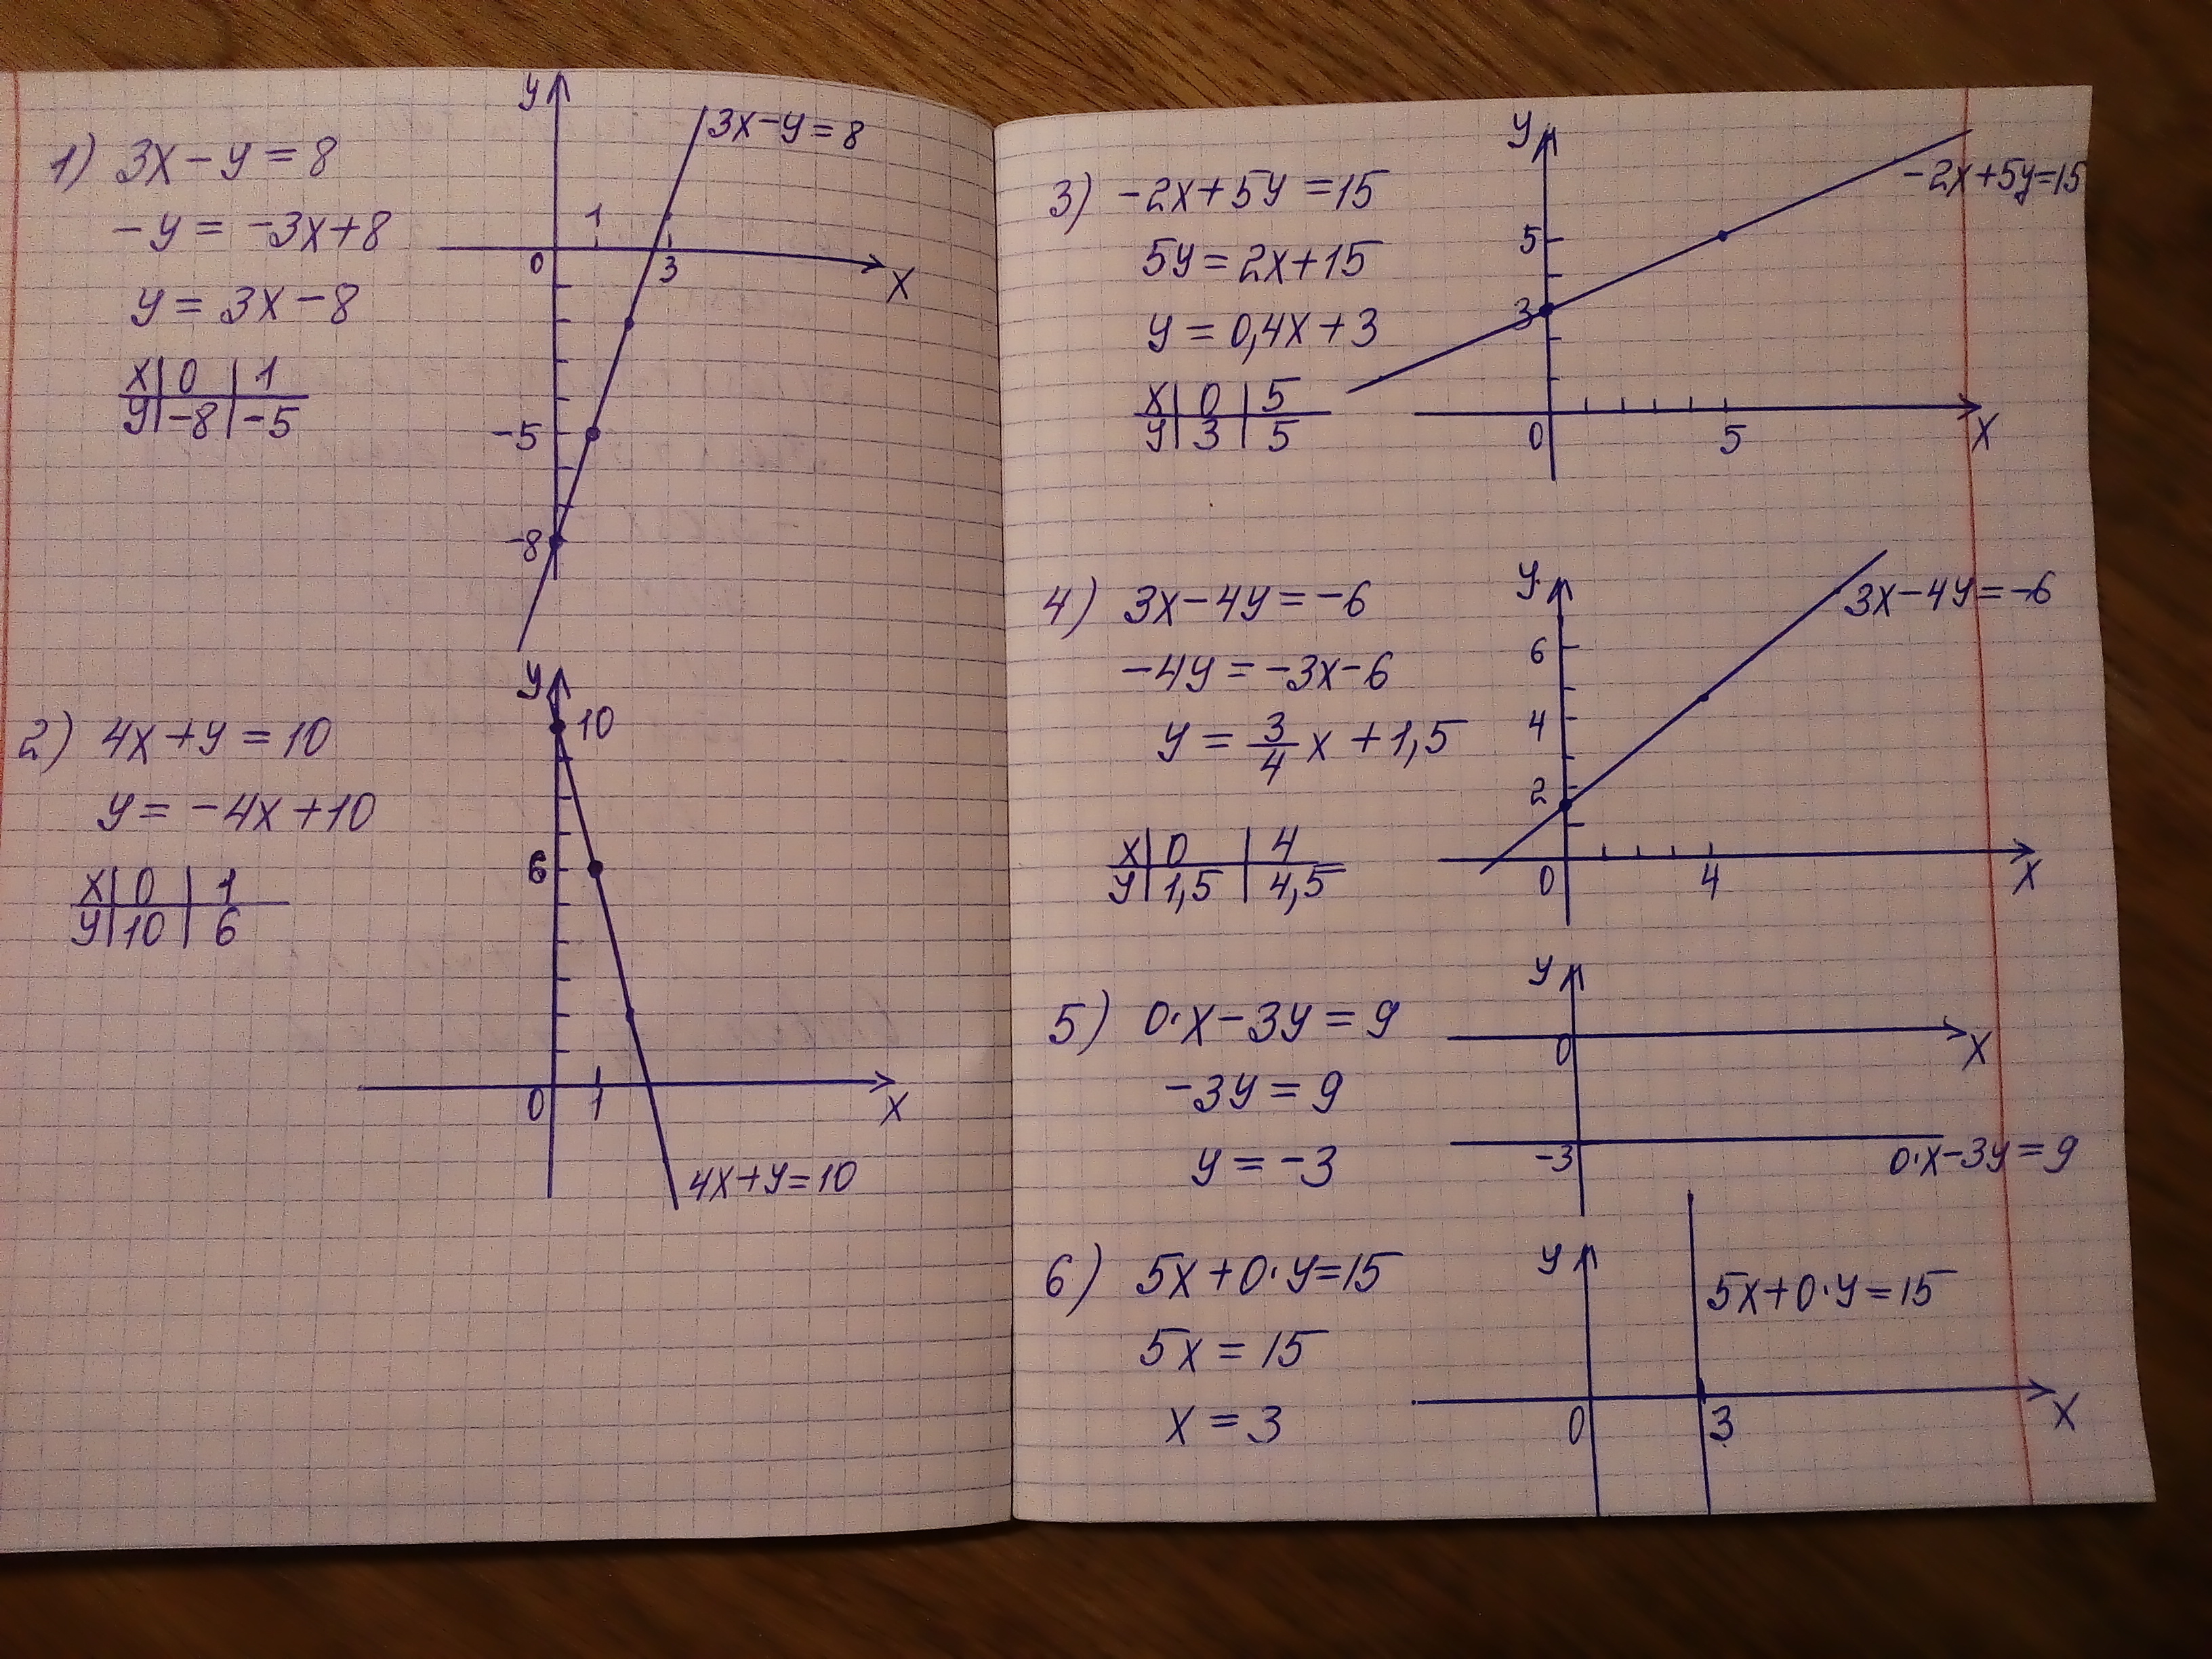 1) 3x-y=8
-y=-3x+8
y=3x-8
x|0|1
y|-8|-5
y
3x-y=8
1
0
3
x
-5
-8
2) 4x+y=10
y=-4x+10
x|0|1
y|10|6
y
10
6
0
1
x
4x+y=10
3) -2x+5y=15
5y=2x+15
y=0,4x+3
x|0|5
y|3|5
y
-2x+5y=15
5
3
0
5
x
4) 3x-4y=-6
-4y=-3x-6
y=3/4x+1,5
x|0|4
y|1,5|4,5
y
3x-4y=-6
6
4
2
0
4
x
5) 0·x-3y=9
-3y=9
y=-3
y
0
x
-3
0·x-3y=9
6) 5x+0·y=15
5x=15
x=3
y
5x+0·y=15
0
3
x